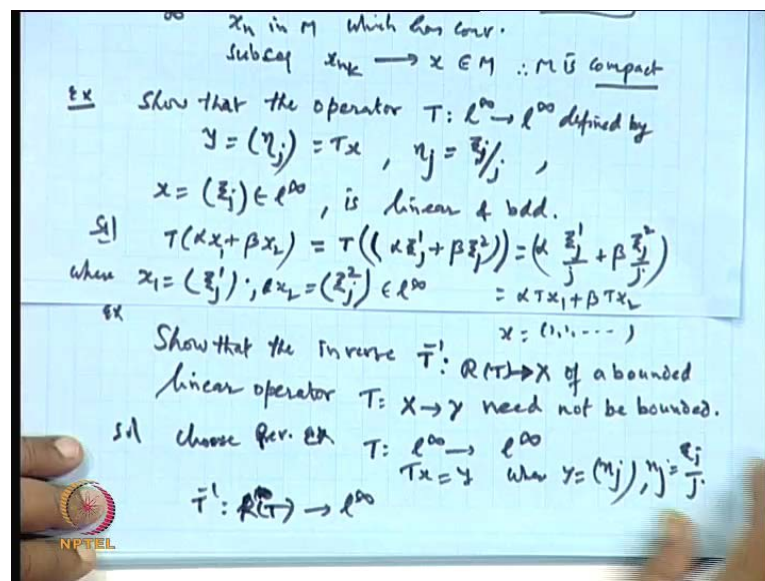 ∞ xn in M which has conv.
Subseq xnk ⟶ x ∈ M ∴ M is compact
Ex Show that the operator T: l∞ → l∞ defined by
y = (ηj) = Tx , ηj = ξj/j ,
x = (ξj) ∈ l∞ , is linear & bdd.
Sol T(αx1 + βx2) = T((αξj¹ + βξj²)) = (α ξj¹/j + β ξj²/j)
where x1 = (ξj¹) ; & x2 = (ξj²) ∈ l∞ = αTx1 + βTx2
x = (1,1, ---- )
Ex Show that the inverse T⁻¹: R(T) → X of a bounded
linear operator T: X → Y need not be bounded.
Sol Choose Prev. Ex T: l∞ ⟶ l∞
Tx = y where y = (ηj), ηj = ξj/j.
T⁻¹: R(T) → l∞
NPTEL